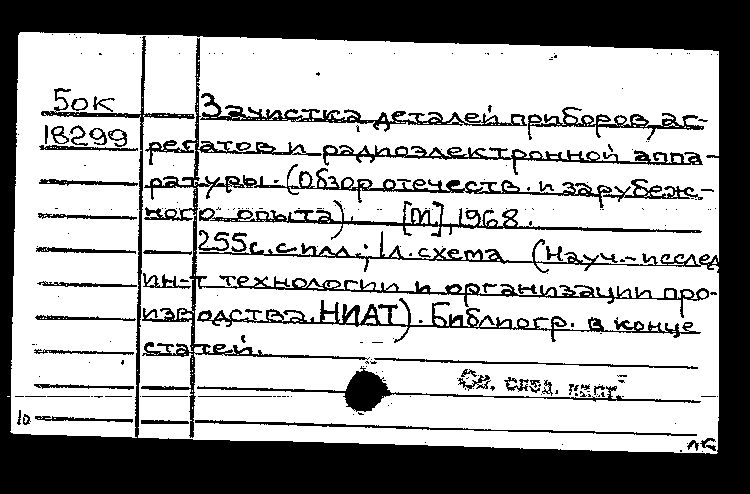 50К
18299
Зачистка деталей приборов, аг-
регатов и радиоэлектронной аппа-
ратуры. (Обзор отечеств. и зарубеж-
ного опыта). [М], 1968.
255с. с илл.; 1 л. схема (Науч.-исслед
ин-т технологии и организации про-
изводства. НИАТ). Библиогр. в конце
статей.
См. след. карт.
10